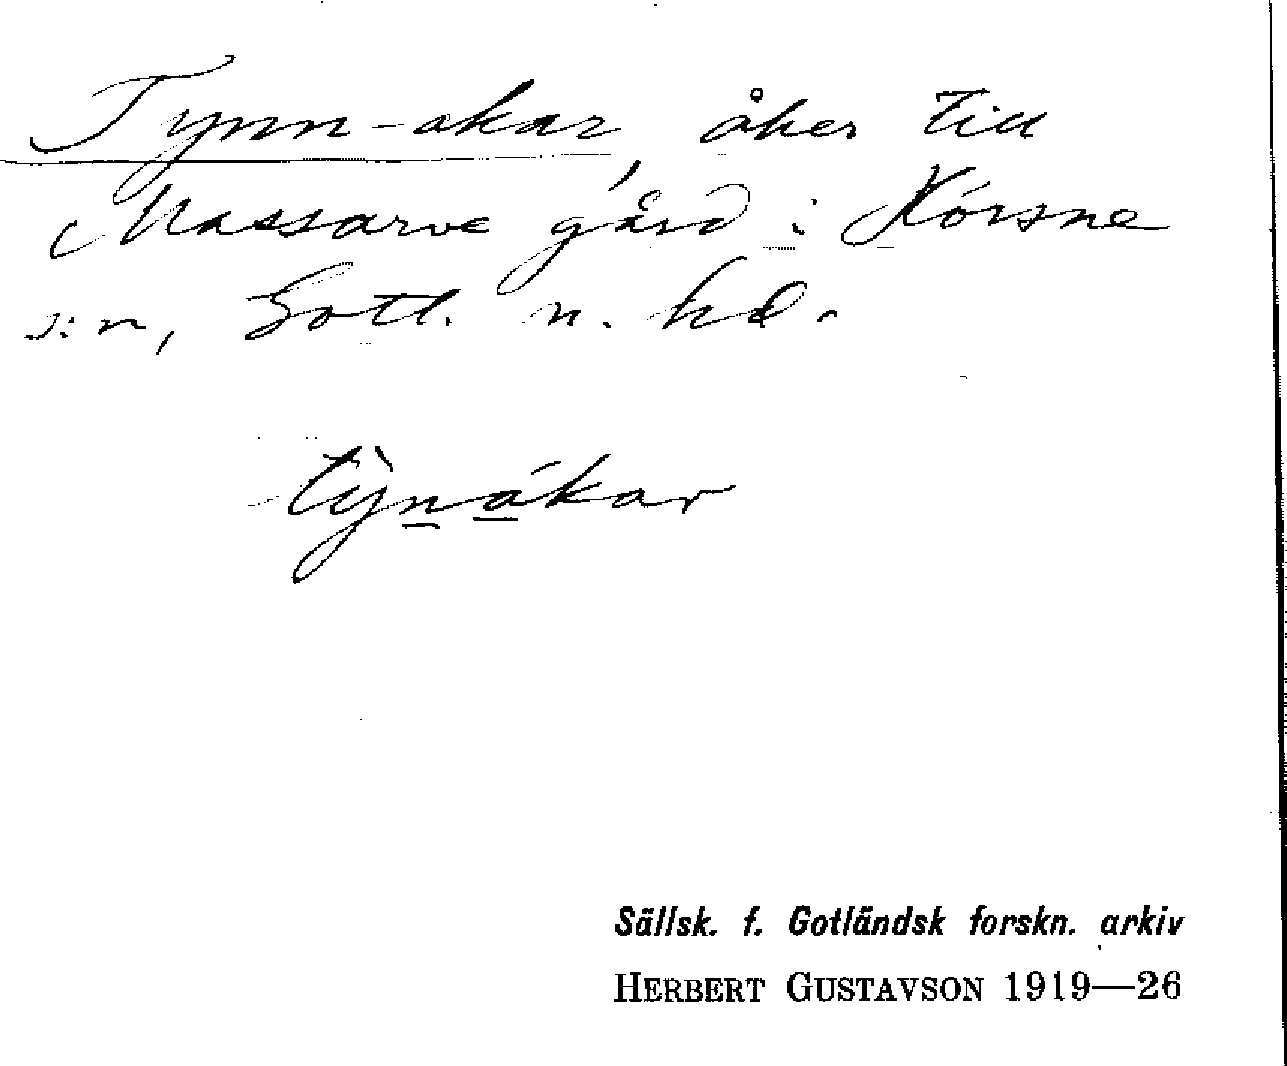 Tynn-akar, åker till
Massarve gård i Hörsne
s:n, Gotl. n. hd.
tỳnákar
Sällsk. f. Gotländsk forskn. arkiv
HERBERT GUSTAVSON 1919—26